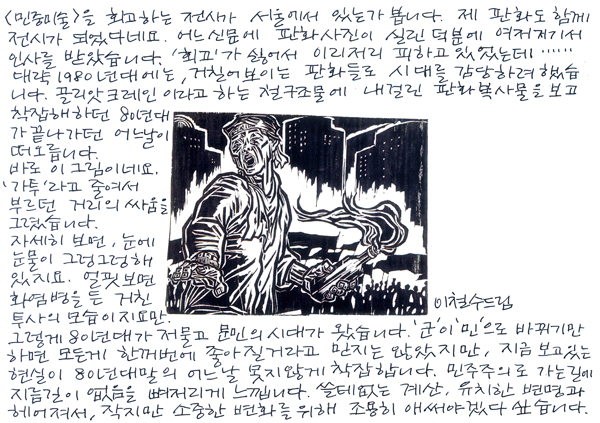 <민중미술>을 회고하는 전시가 서울에서 있는가 봅니다. 제 판화도 함께
전시가 되었다네요. 어느신문에 판화사진이 실린 덕분에 여저저기서
인사를 받았습니다. '회고'가 싫어서 이리저리 피하고 있었는데……
대략 1980년대에는, 거칠어보이는 판화들로 시대를 감당하려 했습
니다. 골리앗크레인 이라고 하는 철구조물에 내걸린 판화복사물을 보고
착잡해하던 80년대
가 끝나가던 어느날이
떠오릅니다.
바로 이 그림이네요.
'가투'라고 줄여서
부르던 거리의 싸움을
그렸습니다.
자세히 보면, 눈에
눈물이 그렁그렁해
있지요. 얼핏보면
화염병을 든 거친
투사의 모습이지요만.
이철수드림
그렇게 80년대가 저물고 문민의 시대가 왔습니다. '군'이 '민'으로 바뀌기만
하면 모든게 한꺼번에 좋아질거라고 믿지는 않았지만, 지금 보고있는
현실이 80년대말의 어느날 못지않게 착잡합니다. 민주주의로 가는길에
지름길이 없음을 뼈저리게 느낍니다. 쓸데없는 계산, 유치한 변명과
헤어져서, 작지만 소중한 변화를 위해 조용히 애써야겠다 싶습니다.